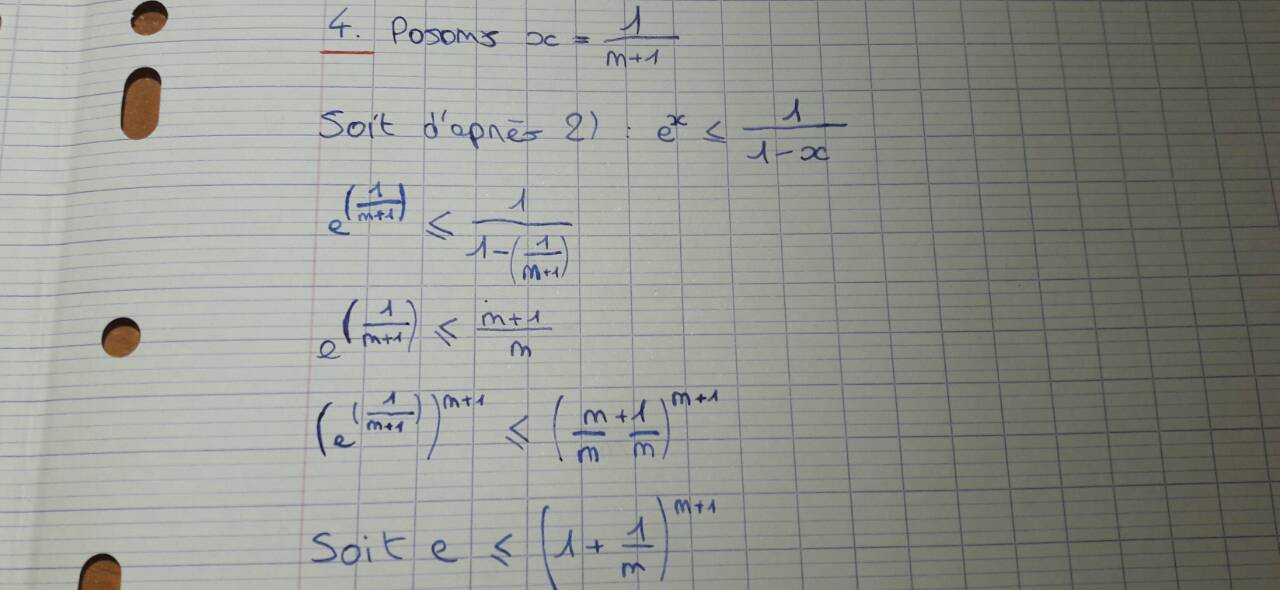 4. Posons x = 1/(n+1)
Soit d'après 2) : e^x ≤ 1/(1-x)
e^(1/(n+1)) ≤ 1/(1-(1/(n+1)))
e^(1/(n+1)) ≤ (n+1)/n
(e^(1/(n+1)))^(n+1) ≤ (n/n + 1/n)^(n+1)
Soit e ≤ (1 + 1/n)^(n+1)